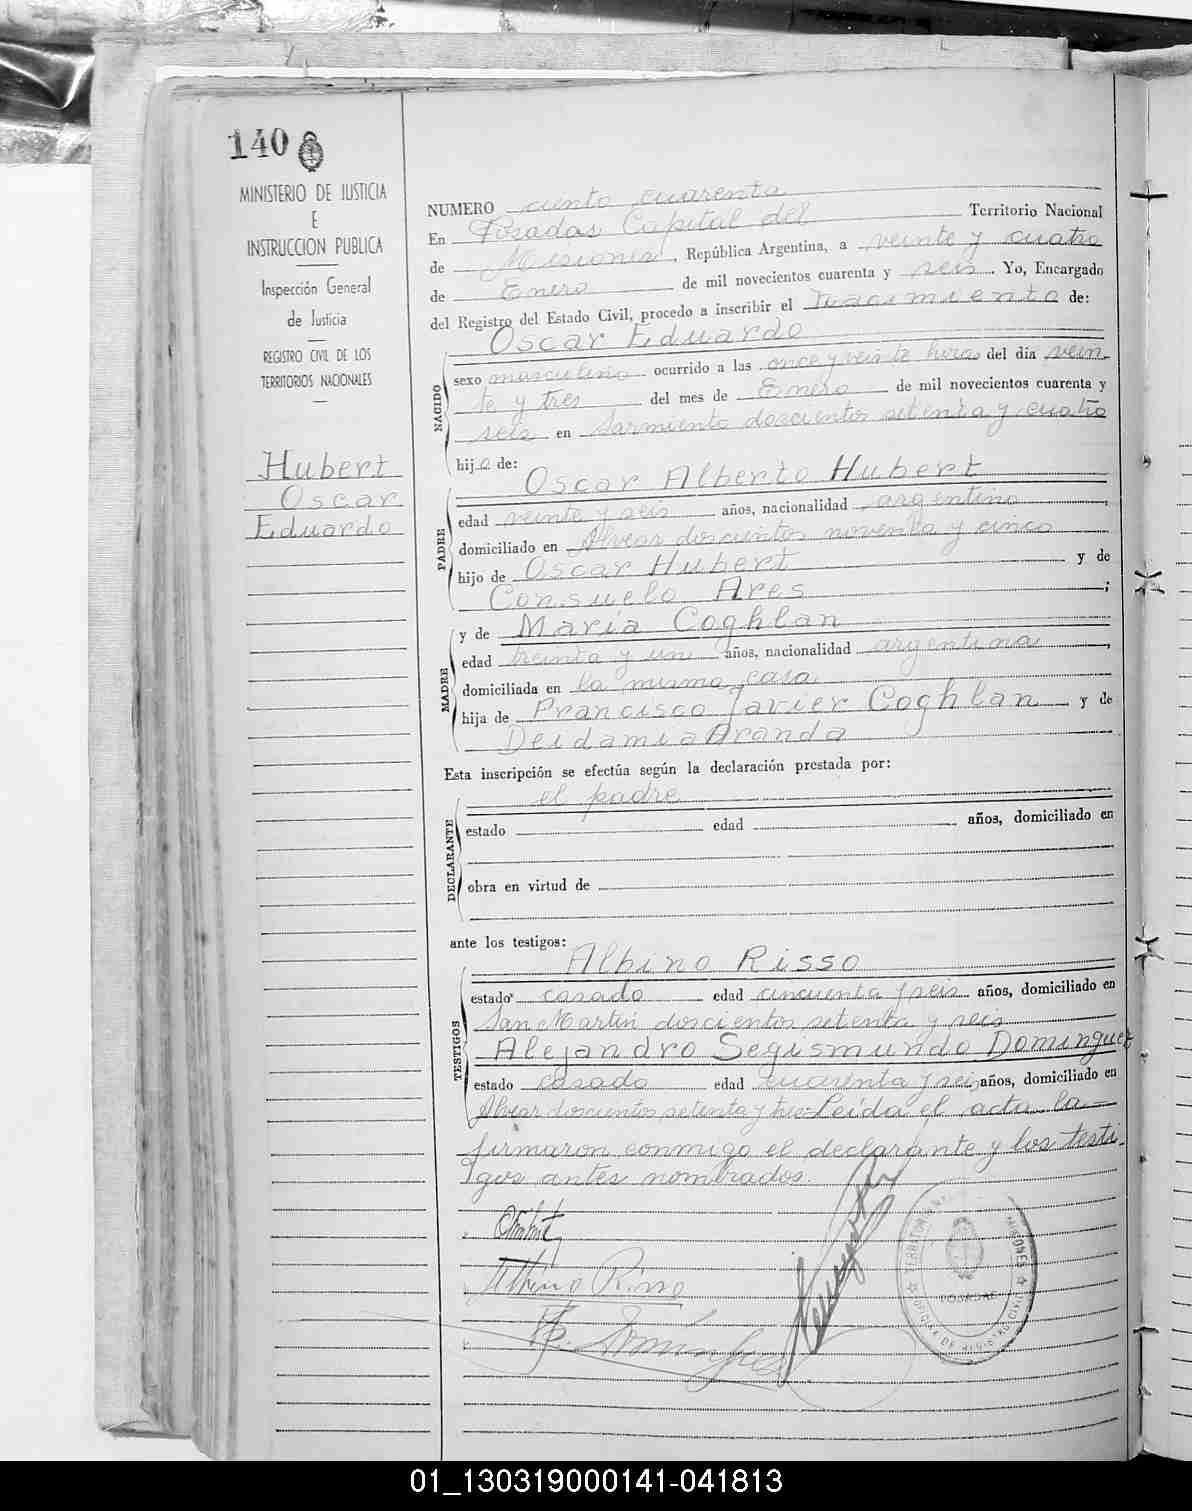 140
MINISTERIO DE JUSTICIA
E
INSTRUCCION PUBLICA
Inspección General
de Justicia
REGISTRO CIVIL DE LOS
TERRITORIOS NACIONALES
Hubert
Oscar
Eduardo
NUMERO ciento cuarenta
En Posadas Capital del Territorio Nacional
de Misiones, República Argentina, a veinte y cuatro
de Enero de mil novecientos cuarenta y seis. Yo, Encargado
del Registro del Estado Civil, procedo a inscribir el nacimiento de:
NACIDO
Oscar Eduardo
sexo masculino ocurrido a las once y veinte horas del día vein
te y tres del mes de Enero de mil novecientos cuarenta y
seis en Sarmiento doscientos setenta y cuatro
hijo de:
PADRE
Oscar Alberto Hubert
edad veinte y seis años, nacionalidad argentino,
domiciliado en Alvear doscientos noventa y cinco
hijo de Oscar Hubert y de
Consuelo Ares;
MADRE
y de María Coghlan
edad treinta y un años, nacionalidad argentina,
domiciliada en la misma casa
hija de Francisco Javier Coghlan y de
Deidamia Aranda
Esta inscripción se efectúa según la declaración prestada por:
DECLARANTE
el padre
estado edad años, domiciliado en
obra en virtud de
ante los testigos:
TESTIGOS
Albino Risso
estado casado edad cincuenta y seis años, domiciliado en
San Martín doscientos setenta y seis
Alejandro Segismundo Dominguez
estado casado edad cuarenta y seis años, domiciliado en
Alvear doscientos setenta y tres=Leída el acta la
firmaron conmigo el declarante y los testi-
gos antes nombrados.
Albino Risso
Domínguez
MISIONES
POSADAS
OFICINA DE REGISTRO CIVIL
01_130319000141-041813